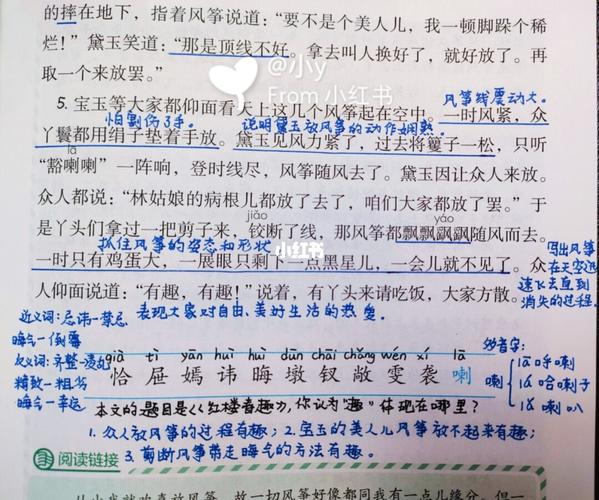 的摔在地下，指着风筝说道：“要不是个美人儿，我一顿脚跺个稀
烂！”黛玉笑道：“那是顶线不好。拿去叫人换好了，就好放了。再
取一个来放罢。”
@小y
From 小红书
风筝线震动大。
5. 宝玉等大家都仰面看天上这几个风筝起在空中。一时风紧，众
怕割伤了手。
说明黛玉放风筝的动作娴熟。
丫鬟都用绢子垫着手放。黛玉见风力紧了，过去将籰子一松，只听
lā
“豁喇喇”一阵响，登时线尽，风筝随风去了。黛玉因让众人来放。
众人都说：“林姑娘的病根儿都放了去了，咱们大家都放了罢。”于
jiǎo
yáo
是丫头们拿过一把剪子来，铰断了线，那风筝都飘飘飖飖随风而去。
抓住风筝的姿态和形状
小红书
写出风筝
一时只有鸡蛋大，一展眼只剩下一点黑星儿，一会儿就不见了。众
在天空远
人仰面说道：“有趣，有趣！”说着，有丫头来请吃饭，大家方散。
速飞去直到
消失的过程。
近义词：忌讳—禁忌
表现大家对自由、美好生活的热爱。
晦气—倒霉
反义词：齐整—凌乱
精致—粗劣
晦气—幸运
qià tì yān huì huì dūn chāi chǎng wén xí lā
恰 屉 嫣 讳 晦 墩 钗 敞 雯 袭 喇
多音字：
喇
lā 呼喇
lá 哈喇子
lǎ 喇叭
本文的题目是《红楼春趣》，你认为“趣”体现在哪里？
1. 众人放风筝的过程有趣；2. 宝玉的美人儿风筝放不起来有趣；
3. 剪断风筝带走晦气的方法有趣。
阅读链接